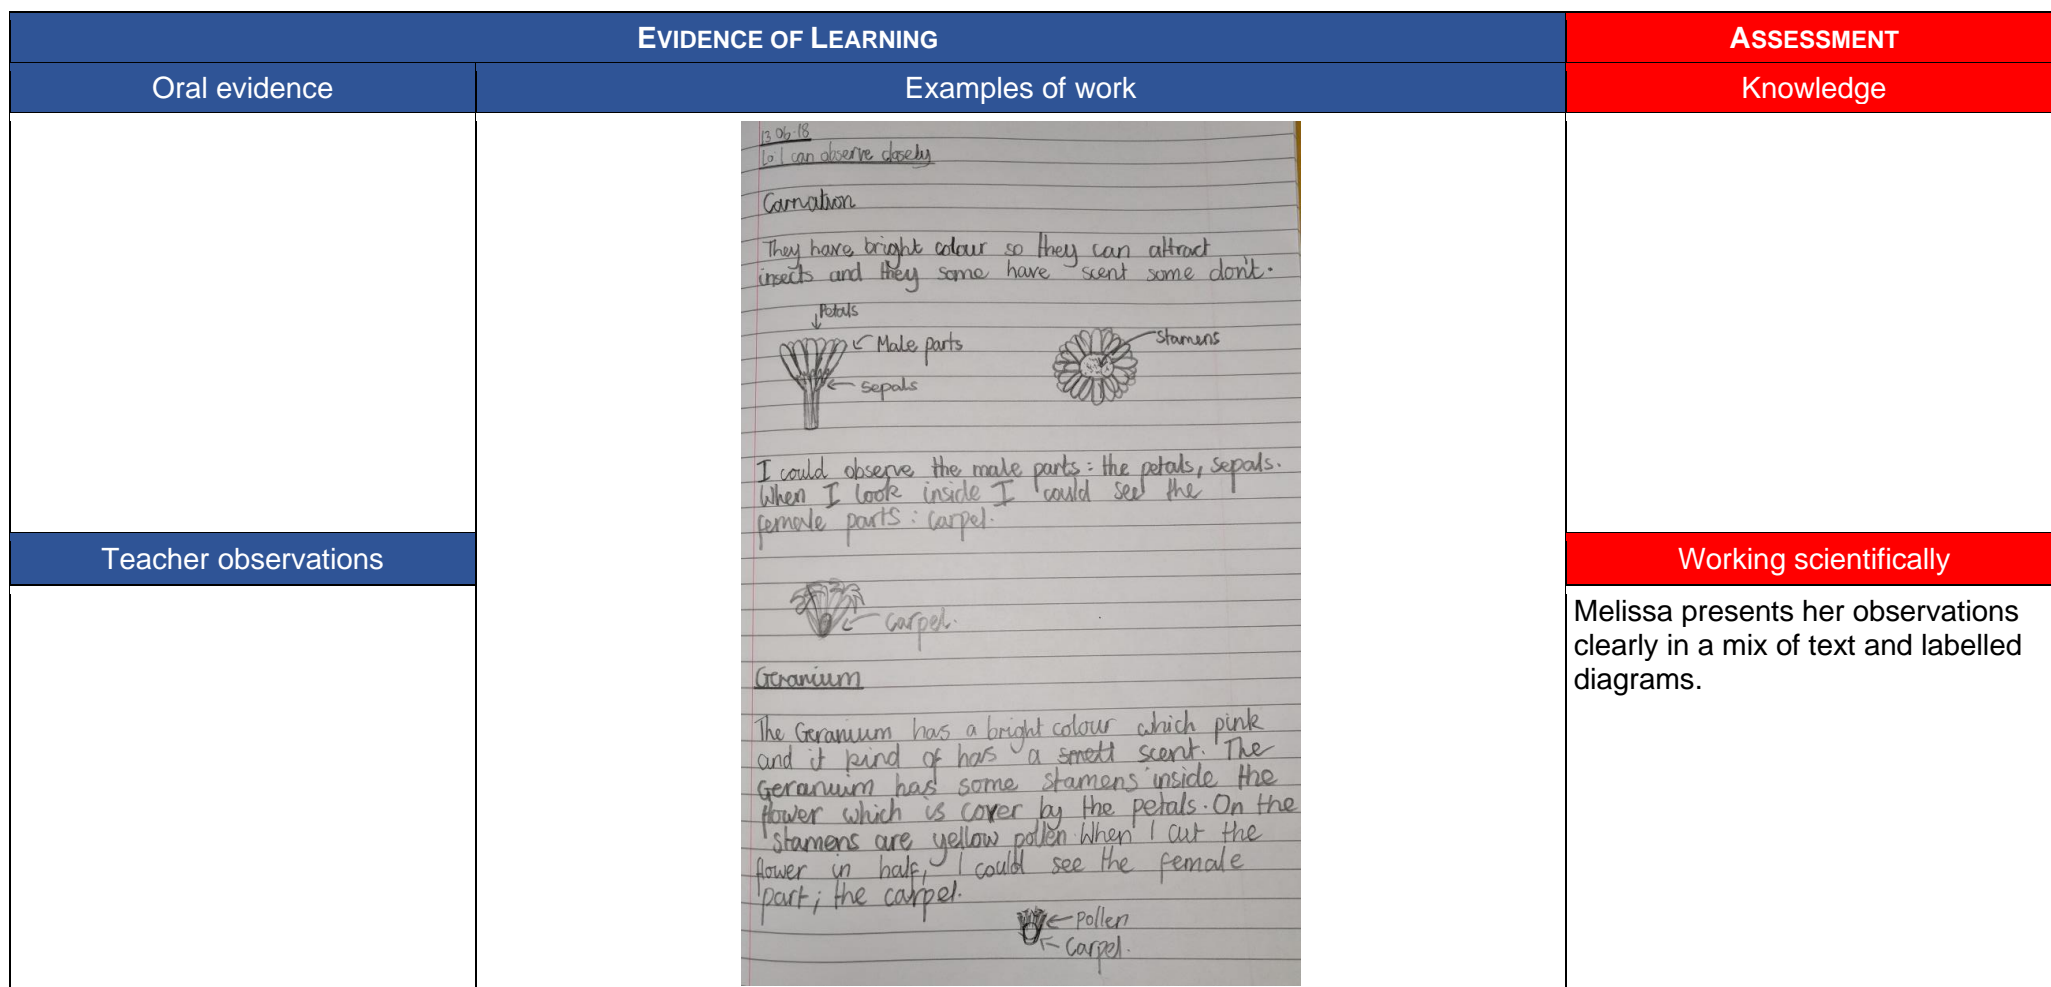 EVIDENCE OF LEARNING
ASSESSMENT
Oral evidence
Examples of work
Knowledge
13.06.18
Lo I can observe closely
Carnation
They have bright colour so they can attract
insects and they some have scent some don't.
Petals
Male parts
Sepals
Stamens
I could observe the male parts: the petals, sepals.
When I look inside I could see the
female parts: carpel.
Carpel.
Geranium
The Geranium has a bright colour which pink
and it kind of has a smell scent. The
Geranuim has some stamens inside the
flower which is cover by the petals. On the
stamens are yellow pollen. When I cut the
flower in half, I could see the female
part; the carpel.
Pollen
Carpel.
Teacher observations
Working scientifically
Melissa presents her observations
clearly in a mix of text and labelled
diagrams.